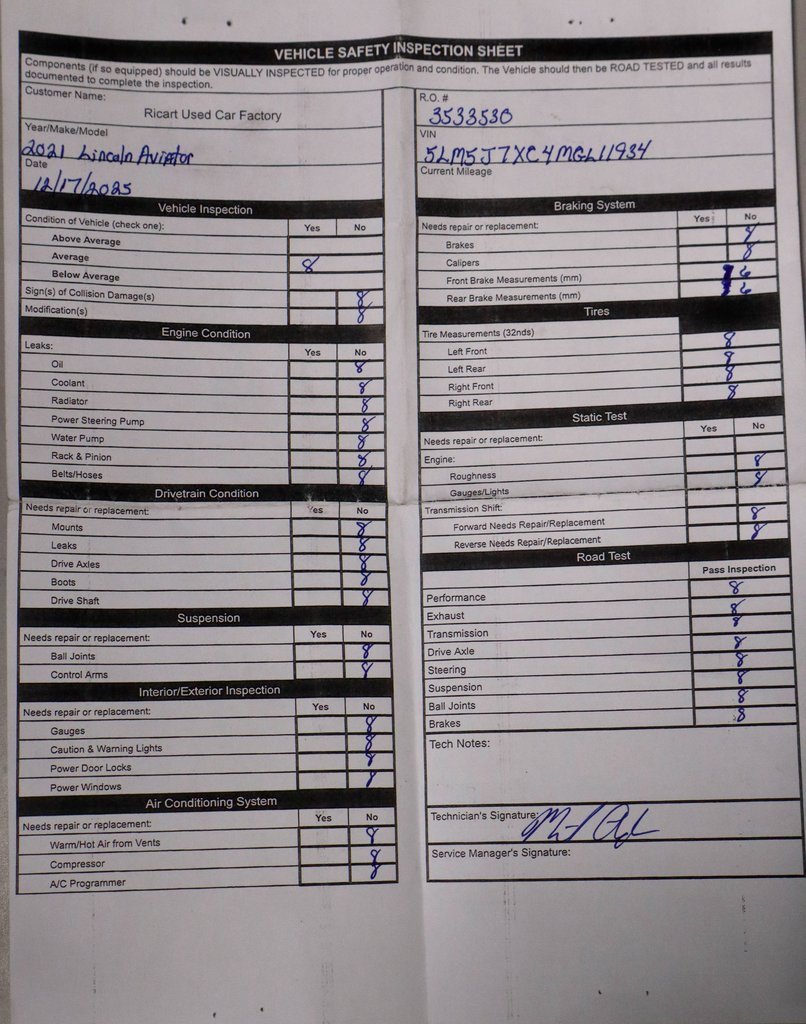 VEHICLE SAFETY INSPECTION SHEET
Components (if so equipped) should be VISUALLY INSPECTED for proper operation and condition. The Vehicle should then be ROAD TESTED and all results
documented to complete the inspection.
Customer Name:
Ricart Used Car Factory
Year/Make/Model
2021 Lincoln Aviator
Date
12/17/2025
Vehicle Inspection
Condition of Vehicle (check one): Yes No
Above Average
Average 8
Below Average
Sign(s) of Collision Damage(s) 8
Modification(s) 8
Engine Condition
Leaks: Yes No
Oil 8
Coolant 8
Radiator 8
Power Steering Pump 8
Water Pump 8
Rack & Pinion 8
Belts/Hoses 8
Drivetrain Condition
Needs repair or replacement: Yes No
Mounts 8
Leaks 8
Drive Axles 8
Boots 8
Drive Shaft 8
Suspension
Needs repair or replacement: Yes No
Ball Joints 8
Control Arms 8
Interior/Exterior Inspection
Needs repair or replacement: Yes No
Gauges 8
Caution & Warning Lights 8
Power Door Locks 8
Power Windows 8
Air Conditioning System
Needs repair or replacement: Yes No
Warm/Hot Air from Vents 8
Compressor 8
A/C Programmer 8
R.O. #
3533530
VIN
5LM5J7XC4MGL11934
Current Mileage
Braking System
Needs repair or replacement: Yes No
Brakes 8
Calipers 8
Front Brake Measurements (mm) 6
Rear Brake Measurements (mm) 6
Tires
Tire Measurements (32nds)
Left Front 8
Left Rear 8
Right Front 8
Right Rear 8
Static Test
Needs repair or replacement: Yes No
Engine:
Roughness 8
Gauges/Lights 8
Transmission Shift:
Forward Needs Repair/Replacement 8
Reverse Needs Repair/Replacement 8
Road Test
Pass Inspection
Performance 8
Exhaust 8
Transmission 8
Drive Axle 8
Steering 8
Suspension 8
Ball Joints 8
Brakes 8
Tech Notes:
Technician's Signature:
Service Manager's Signature: